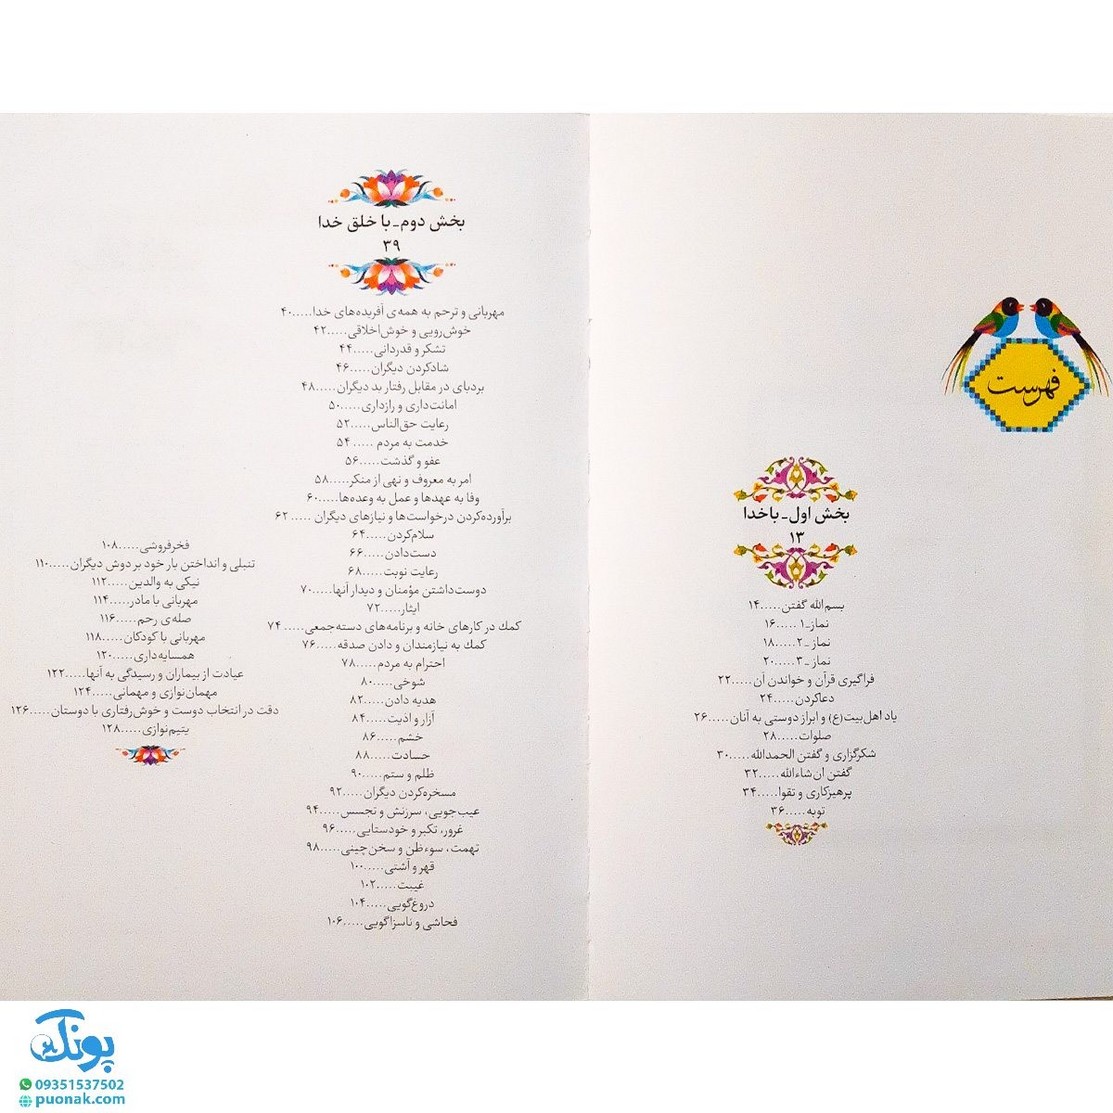 فهرست
بخش اول ـ با خدا
۱۳
بسم‌الله گفتن.....۱۴
نماز ـ ۱ .....۱۶
نماز ـ ۲.....۱۸
نماز ـ ۳.....۲۰
فراگیری قرآن و خواندن آن.....۲۲
دعاکردن.....۲۴
یاد اهل‌بیت(ع) و ابراز دوستی به آنان.....۲۶
صلوات.....۲۸
شکرگزاری و گفتن الحمدالله.....۳۰
گفتن ان‌شاءالله.....۳۲
پرهیزکاری و تقوا.....۳۴
توبه.....۳۶
بخش دوم ـ با خلق خدا
۳۹
مهربانی و ترحم به همه‌ی آفریده‌های خدا.....۴۰
خوش‌رویی و خوش‌اخلاقی.....۴۲
تشکر و قدردانی.....۴۴
شادکردن دیگران.....۴۶
بردبای در مقابل رفتار بد دیگران.....۴۸
امانت‌داری و رازداری.....۵۰
رعایت حق‌الناس.....۵۲
خدمت به مردم ..... ۵۴
عفو و گذشت.....۵۶
امر به معروف و نهی از منکر.....۵۸
وفا به عهدها و عمل به وعده‌ها.....۶۰
برآورده‌کردن درخواست‌ها و نیازهای دیگران ..... ۶۲
سلام‌کردن.....۶۴
دست‌دادن.....۶۶
رعایت نوبت.....۶۸
دوست‌داشتن مؤمنان و دیدار آنها.....۷۰
ایثار.....۷۲
کمک در کارهای خانه و برنامه‌های دسته‌جمعی..... ۷۴
کمک به نیازمندان و دادن صدقه.....۷۶
احترام به مردم.....۷۸
شوخی.....۸۰
هدیه دادن.....۸۲
آزار و اذیت.....۸۴
خشم.....۸۶
حسادت.....۸۸
ظلم و ستم.....۹۰
مسخره‌کردن دیگران.....۹۲
عیب‌جویی، سرزنش و تجسس.....۹۴
غرور، تکبر و خودستایی.....۹۶
تهمت، سوءظن و سخن‌چینی.....۹۸
قهر و آشتی.....۱۰۰
غیبت.....۱۰۲
دروغ‌گویی.....۱۰۴
فحاشی و ناسزاگویی.....۱۰۶
فخرفروشی.....۱۰۸
تنبلی و انداختن بار خود بر دوش دیگران.....۱۱۰
نیکی به والدین.....۱۱۲
مهربانی با مادر.....۱۱۴
صله‌ی رحم.....۱۱۶
مهربانی با کودکان.....۱۱۸
همسایه‌داری.....۱۲۰
عیادت از بیماران و رسیدگی به آنها.....۱۲۲
مهمان‌نوازی و مهمانی.....۱۲۴
دقت در انتخاب دوست و خوش‌رفتاری با دوستان.....۱۲۶
یتیم‌نوازی.....۱۲۸
پونک
09351537502
puonak.com